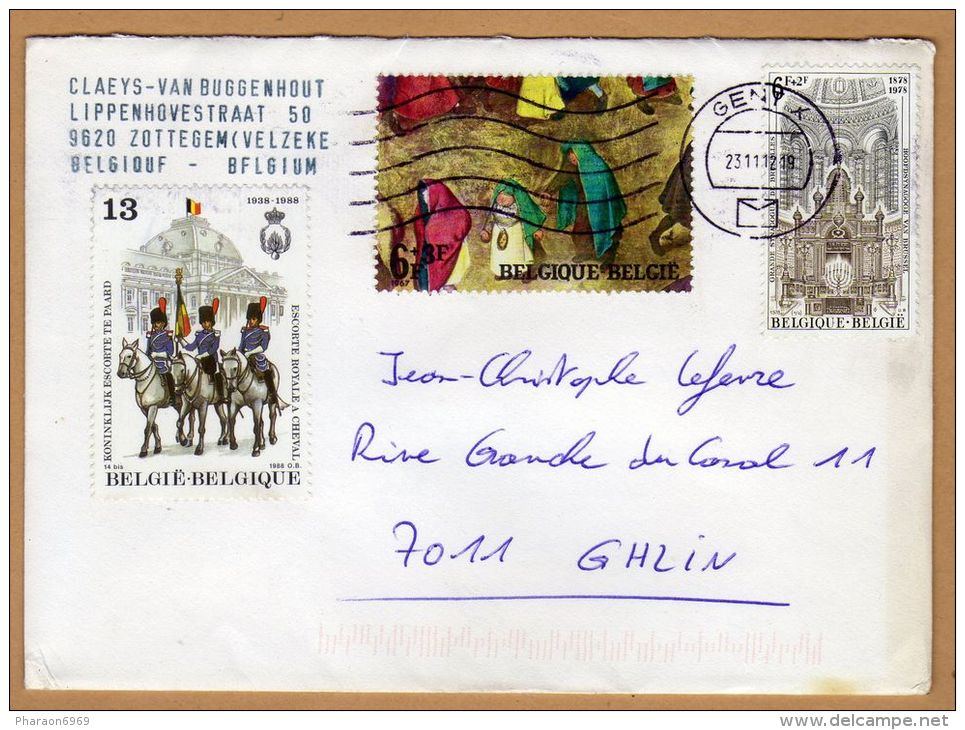 CLAEYS-VAN BUGGENHOUT
LIPPENHOVESTRAAT 50
9620 ZOTTEGEM(VELZEKE
BELGIQUF - BFLGIUM
13
1938-1988
KONINKLIJK ESCORTE TE PAARD
ESCORTE ROYALE A CHEVAL
14 bis
1988 O.B.
BELGIË·BELGIQUE
6F+3F
1967
BELGIQUE·BELGIË
GENT X
231112 19
6F+2F
1878
1978
GRANDE SYNAGOGUE DE BRUXELLES
HOOFDSYNAGOGE VAN BRUSSEL
BELGIQUE·BELGIË
Jean-Christophe Lefevre
Rive Grande du Canal 11
7011 GHLIN
Pharaon6969
www.delcampe.net